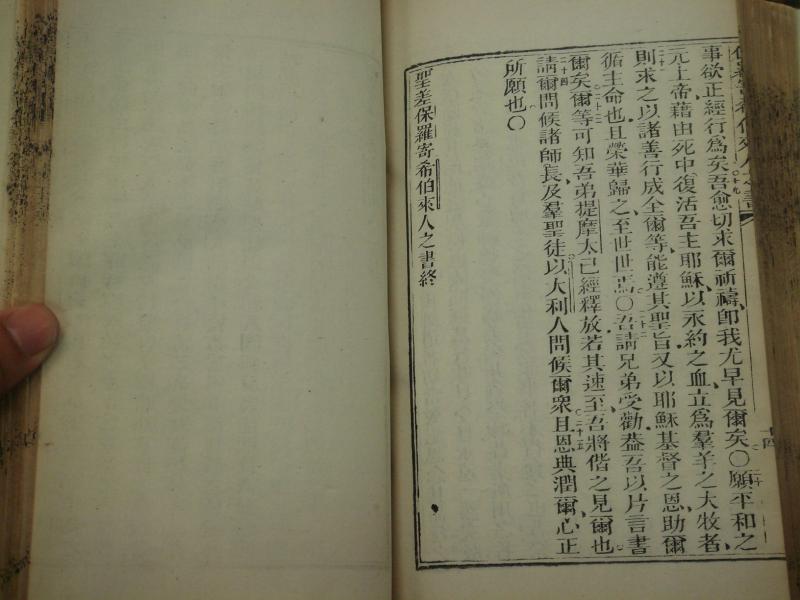 事欲正經行為矣吾愈切求爾祈禱、卽我尤早見爾矣○願平和之
元上帝、藉由死中復活吾主耶穌、以永約之血、立為羣羊之大牧者、
則求之以諸善行成全爾等、能遵其聖旨、又以耶穌基督之恩、助爾
循主命也。且榮華歸之、至世世焉○吾請兄弟受勸、蓋吾以片言書
爾矣、爾等可知吾弟提摩太已經釋放、若其速至、吾將偕之見爾也
請爾問候諸師長、及羣聖徒、以大利人問候爾衆、且恩典潤爾心、正
所願也○
聖差保羅寄希伯來人之書終